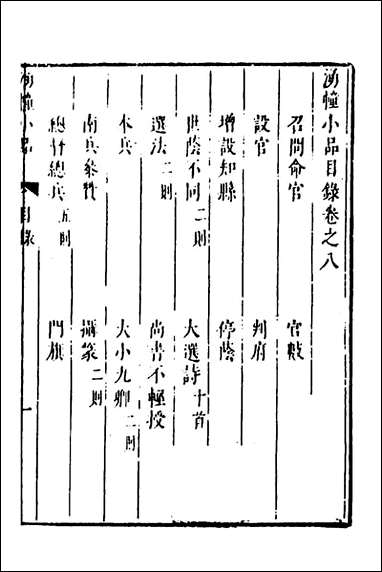 湧幢小品目錄卷之八
召問命官 官數
設官 判府
增設知縣 停蔭
世蔭不同二則 大選詩十首
選法二則 尚書不輕授
本兵 大小九卿二則
南兵參贊 攝篆二則
總督總兵五則 門旗
湧幢小品 目錄 一